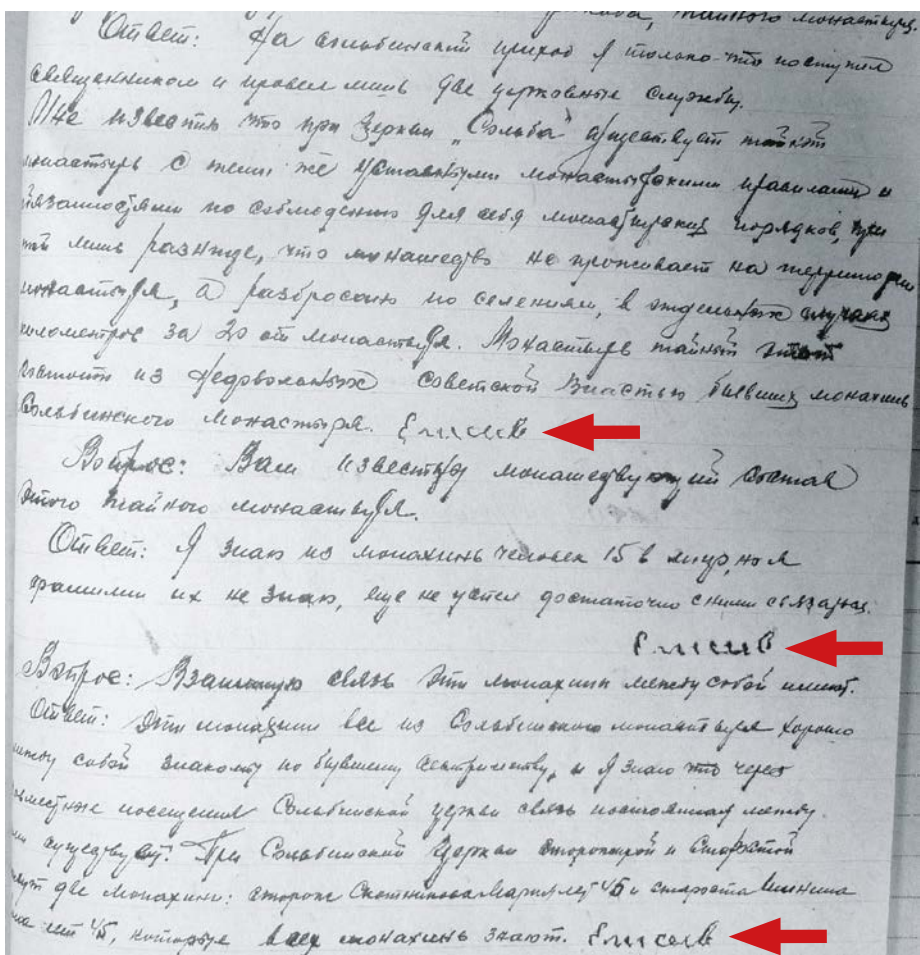 тайного монастыря.
Ответ: На сольбинский приход я только-что поступил
священником и провел лишь две церковные службы.
Мне известно что при Церкви „Сольба" существует тайный
монастырь с теми же уставными монастырскими правилами и
обязанностями по соблюдению для себя монастырских порядков, при
той лишь разнице, что монашество не проживает на территории
монастыря, а разбросано по селениям, в отдельных случаях
километров за 20 от монастыря. Монастырь тайный этот
состоит из недовольных советской властью бывших монахинь
Сольбинского монастыря. Елисеев
Вопрос: Вам известны монашедвующий состав
этого тайного монастыря.
Ответ: Я знаю из монахинь человек 15 в лицо, но я
фамилии их не знаю, еще не успел достаточно с ними связаться.
Елисеев
Вопрос: Взаимную связь эти монахини между собой имеют.
Ответ: Эти монахини все из Сольбинского монастыря хорошо
между собой знакомы по бывшему сестричеству, и я знаю что через
совместные посещения Сольбинской церкви связь постоянная между
ними существует. При Сольбинской Церкви сторожихой и старостой
две монахини: сторож Скотникова Мария лет 45 и староста
лет 45, которые всех монахинь знают. Елисеев